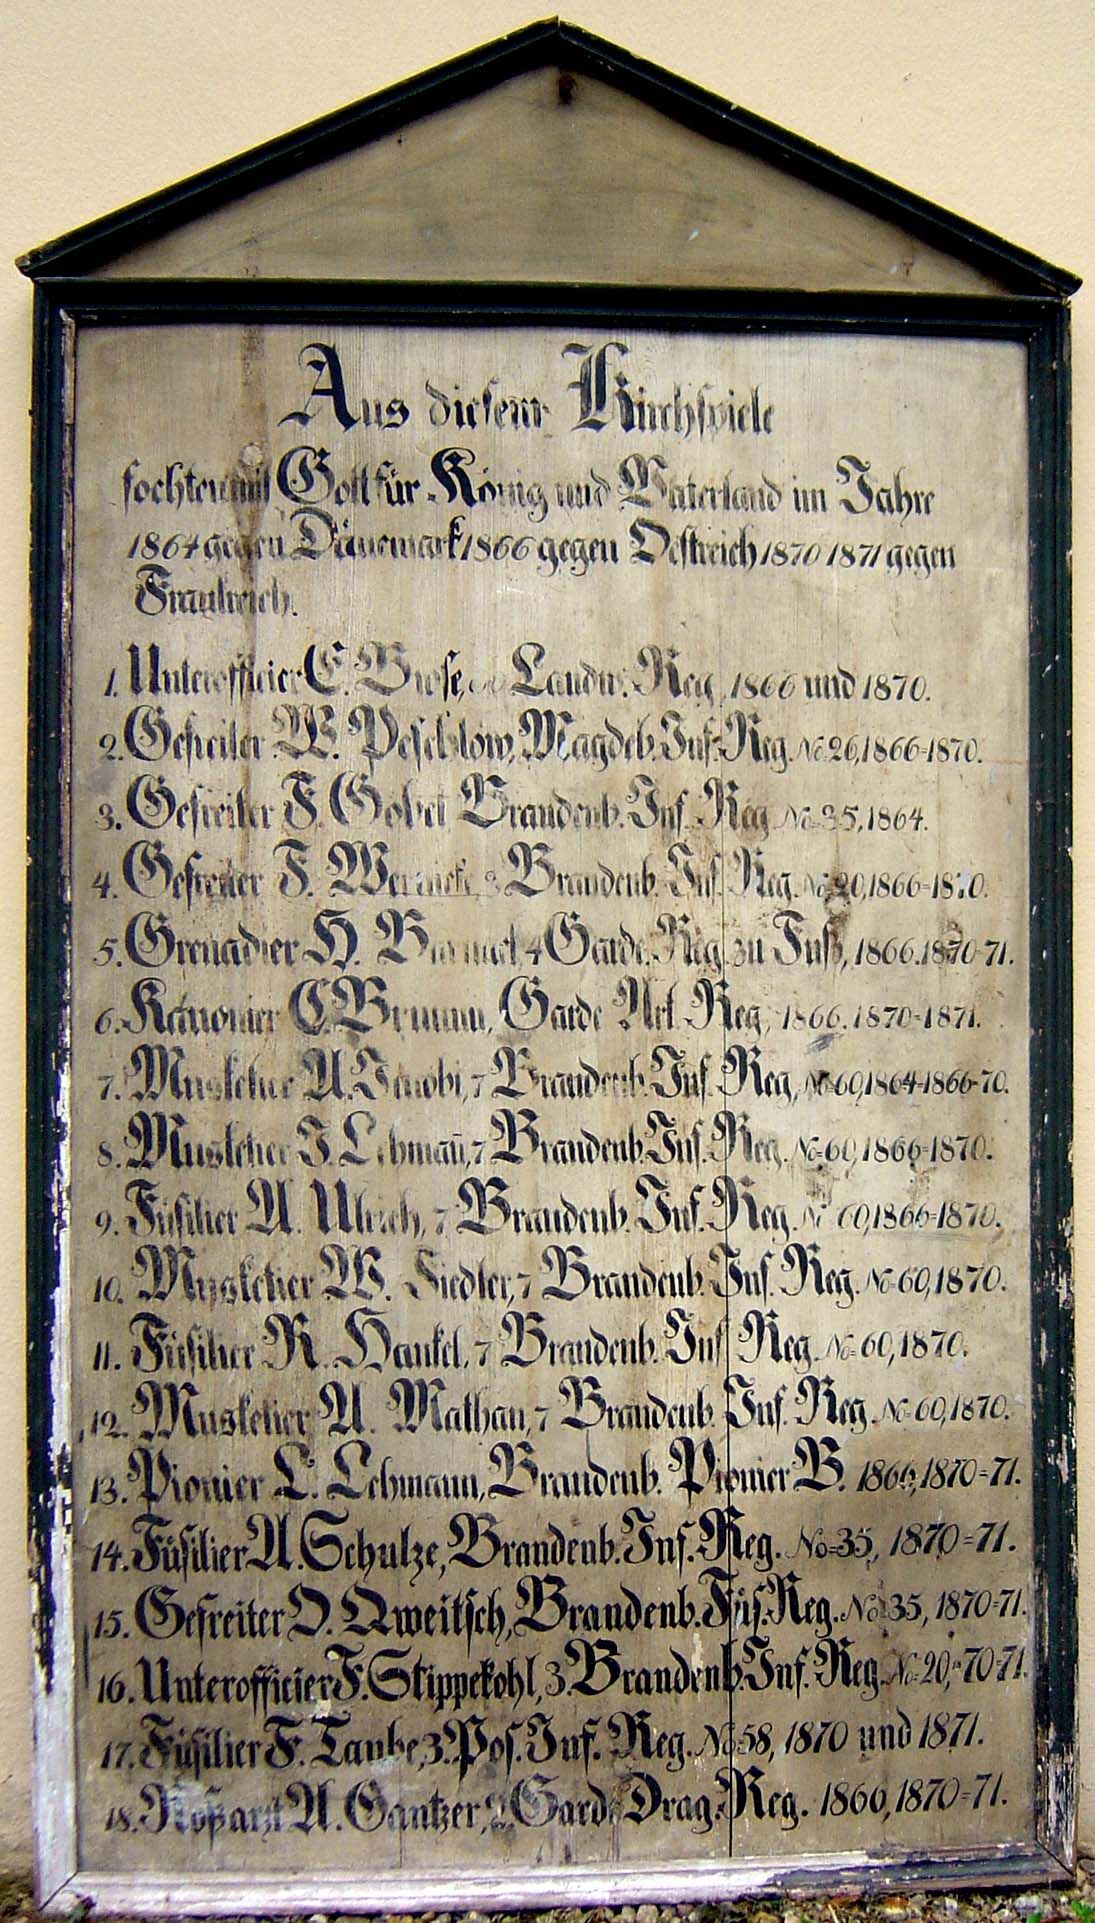 Aus diesem Kirchspiele
fochten mit Gott für König und Vaterland im Jahre
1864 gegen Dänemark 1866 gegen Oestreich 1870 1871 gegen
Frankreich.
1. Unterofficier C. Brose, Landw. Reg. 1866 und 1870.
2. Gefreiter W. Peschlow, Magdeb. Inf. Reg. No. 26, 1866-1870.
3. Gefreiter F. Brandenb. Inf. Reg No. 35, 1864.
4. Gefreiter F. Wernicke, 3 Brandenb. Inf. Reg. No. 20, 1866-1870.
5. Grenadier H. 4 Garde. Reg. zu Fuß, 1866. 1870-71.
6. Kanonier C. Brumm, Garde Art. Reg, 1866. 1870-1871.
7. Musketier A. Jacobi, 7 Brandenb. Inf. Reg, No 60, 1864-1866-70.
8. Musketier J. Lehman̄, 7 Brandenb. Inf. Reg. No. 60, 1866-1870.
9. Füsilier A. Ulrich, 7 Brandenb. Inf. Reg. No 60, 1866-1870.
10. Musketier W. Fiedler, 7 Brandenb. Inf. Reg. No. 60, 1870.
11. Füsilier R. Hankel, 7 Brandenb. Inf Reg. No. 60, 1870.
12. Musketier A. Mathau, 7 Brandenb. Inf. Reg. No. 60, 1870.
13. Pionier L. Lehmann, Brandenb. Pionier B. 1866, 1870=71.
14. Füsilier A. Schulze, Brandenb. Inf. Reg. No. 35, 1870=71.
15. Gefreiter O. Qweitsch, Brandenb. Füs. Reg. No 35, 1870=71.
16. Unterofficier F. Stippekohl, 3. Brandenb. Inf. Reg. No. 20, 70=71.
17. Füsilier F. Taube, 3. Pos. Inf. Reg. No 58, 1870 und 1871.
18. Roßarzt A. Gantzer, 2. Garde Drag. Reg. 1866, 1870=71.